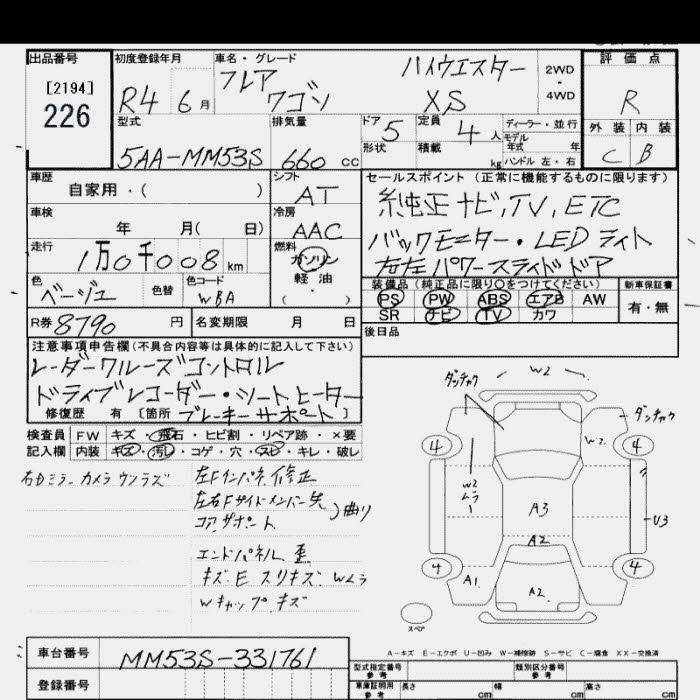 出品番号 初度登録年月 車名・グレード 評価点
[2194] フレア ハイウエスター 2WD
226 R4 6月 ワゴン XS 4WD R
型式 排気量 ドア 5 定員 4人 ディーラー・並行 外装 内装
モデル年式 年
5AA-MM53S 660cc 形状 積載 kg ハンドル 左・右 C B
車歴 シフト セールスポイント (正常に機能するものに限ります)
自家用・( ) AT 純正ナビ,TV,ETC
車検 冷房
年 月( 日) AAC バックモニター・LEDライト
走行 燃料
1万0千008km ガソリン 右左パワースライドドア
色 色替 色コード 軽油 装備品 (純正品に限り○をつけてください) 新車保証書
ベージュ WBA ・( ) PS PW ABS エアB AW 有・無
R券 8790円 名変期限 月 日 SR ナビ TV カワ
後日品
注意事項申告欄(不具合内容等は具体的に記入して下さい)
レーダークルーズコントロル
ドライブレコーダー・シートヒーター
修復歴 有 [箇所 ブレーキサポート]
検査員 FW キズ・飛石・ヒビ割・リペア跡・×要
記入欄 内装 キズ・汚レ・コゲ・穴・スレ・キレ・破レ
右Dミラーカメラウンラズ 左Fインパネ修正
左右Fサイドメンバー先
コアサポート 曲り
エンドパネル 歪
キズ E スリキズ Wムラ
Wキャップキズ
ダンチャク W2
ダンチャク
4 W2 4
W2
ムラ
A3 U3
A2
4 4
A1 A2
スペア
A-キズ E-エクボ U-凹み W-補修跡 S-サビ C-腐食 XX-交換済
車台番号 MM53S-331761 型式指定番号 参考 類別区分番号 参考
登録番号 車庫証明用 参考 長さ cm 幅 cm 高さ cm